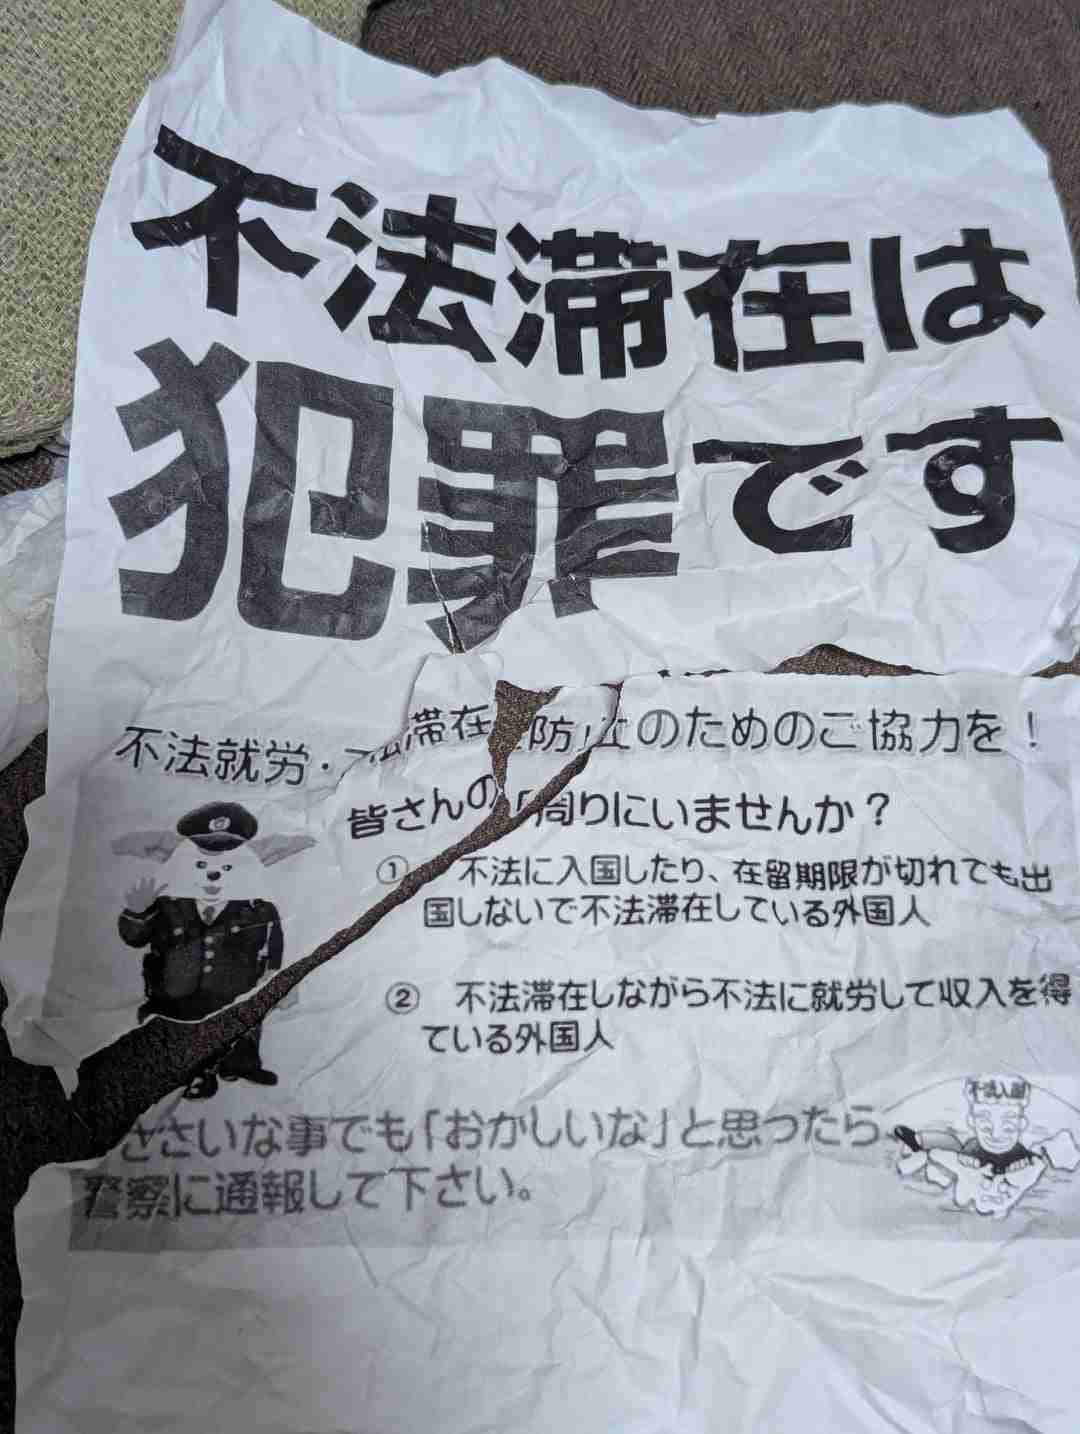 不法滞在は
犯罪です
不法就労・不法滞在防止のためのご協力を！
皆さんの周りにいませんか？
① 不法に入国したり、在留期限が切れても出
国しないで不法滞在している外国人
② 不法滞在しながら不法に就労して収入を得
ている外国人
ささいな事でも「おかしいな」と思ったら
警察に通報して下さい。
不法入国